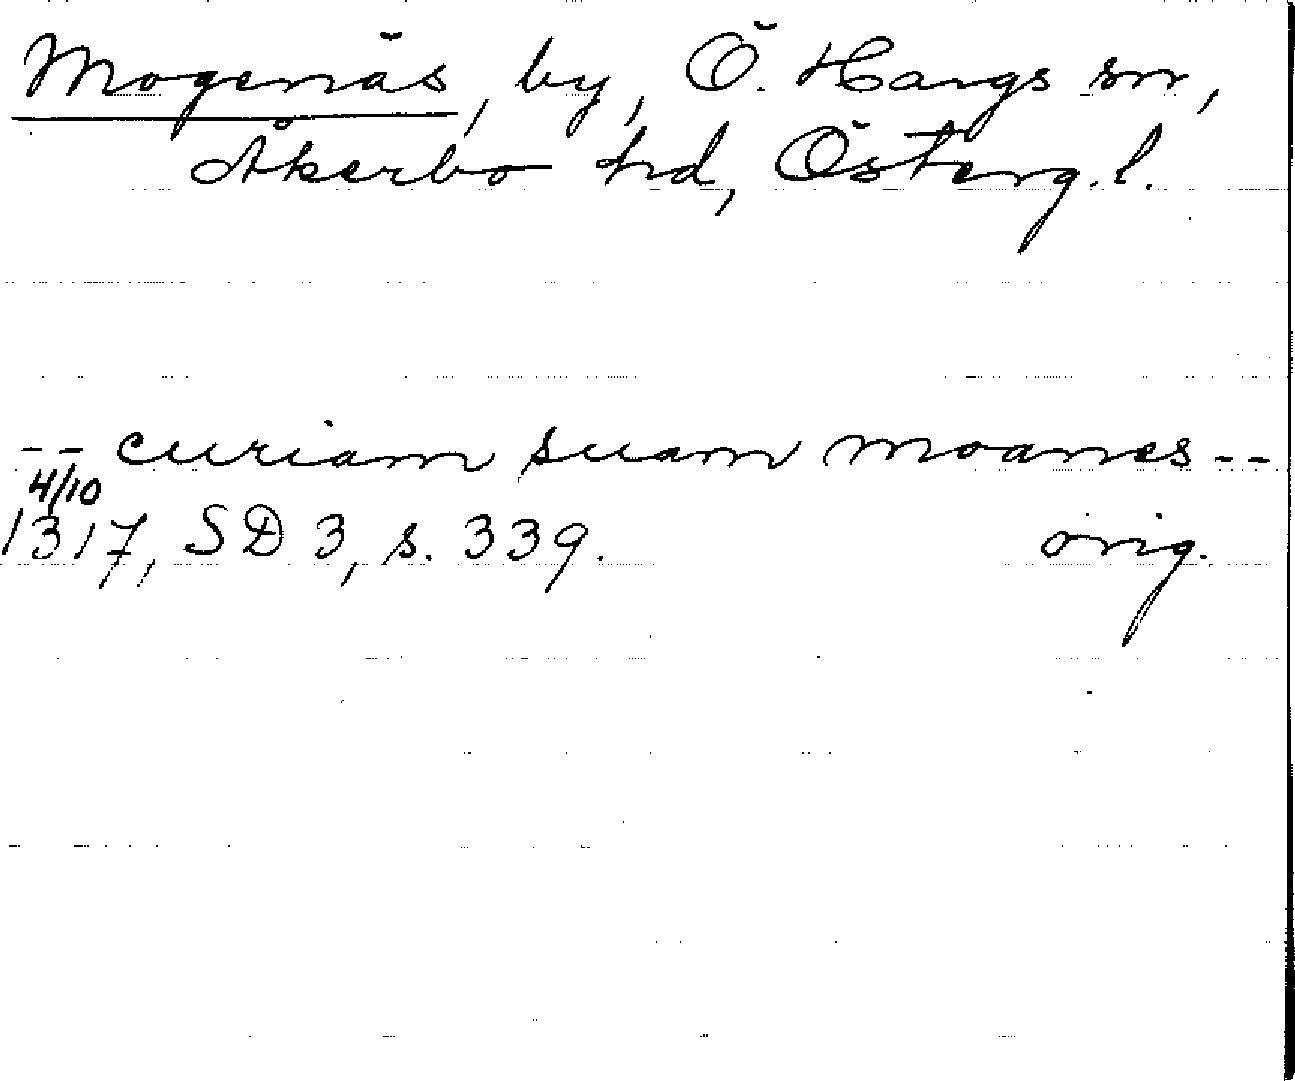 Mogenäs, by, Ö. Hargs sn,
Åkerbo hd, Österg. l.
-- curiam suam moanes --
4/10
1317, SD 3, s. 339. orig.